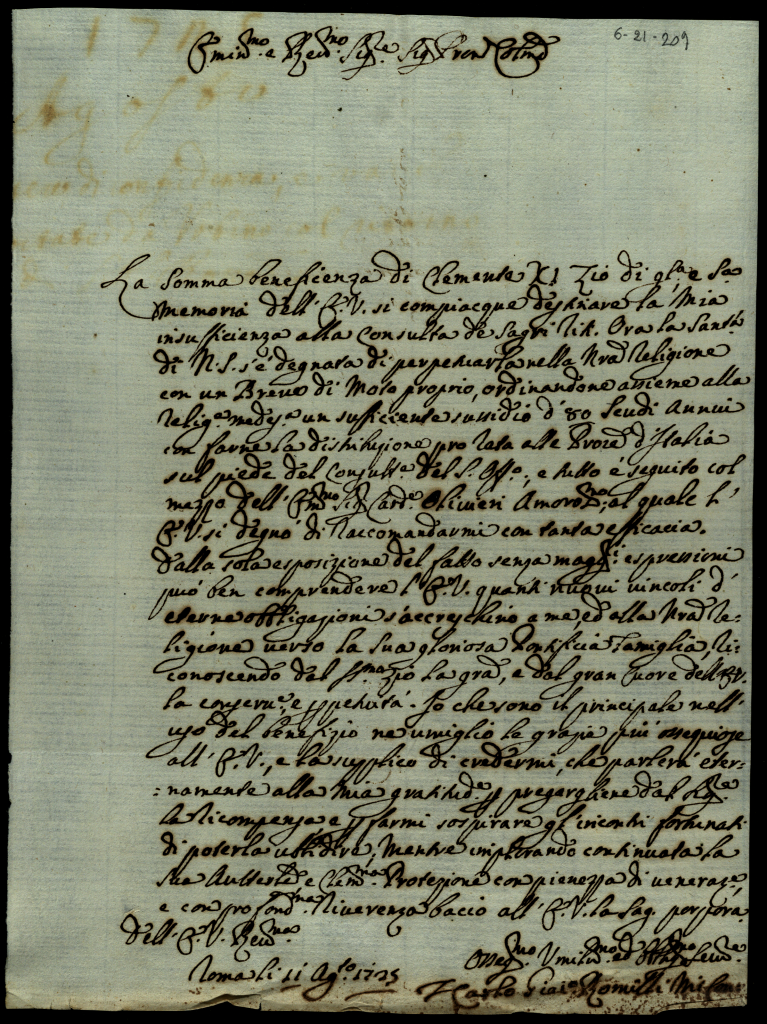 6-21-209
Emin.mo e Rev.mo Sig.re Sig.r Pron Colmo
La Somma beneficenza di Clemente XI Zio di gl.a e Sa
Memoria dell'E.V. si compiacque destinare la Mia
insufficienza alla Consulta de Sagri Rit. Ora la Sant.tà
di N.S. s'è degnata di perpetuarla nella Nra Religione
con un Breve di Moto proprio, ordinandone assieme alla
Relig.e medes.a un sufficiente sussidio d'80 Scudi Annui
con farne la distribuzione pro rata alle Prov.e d'Italia
sul piede del Consult.e del S. Off.o, e tutto è seguito col
mezzo dell'Em.mo Sig. Card.e Olivieri Amorev.mo, al quale l'
E.V. si degnò di raccomandarmi con tanta efficacia.
Dalla sola esposizione del fatto senza magg.i espressioni
può ben comprendere l'E.V. quanti nuovi vincoli d'
eterne obbligazioni s'accreschino a me, ed alla Nra Re-
ligione verso la sua gloriosa Pontificia Famiglia, ri-
conoscendo dal S.mo Zio la gra, e dal gran Cuore dell'E.V.
la conserv.e, e ppetuità. Io che sono il principale nell'
uso del benefizio ne umiglio le grazie più ossequiose
all'E.V., e la supplico di credermi, che parlerà eter-
:namente alla Mia gratitud.e p pregargliene dal Sig.re
la ricompensa e p farmi sospirare gl'incontri fortunati
di poterla ubbidire, Mentre implorando continuata la
sua Autorev.e, e Clem.ma Protezione con pienezza di veneraz.e,
e con profond.ma Riverenza bacio all'E.V. la Sag. porpora.
Dell'E.V. Rev.ma
Osseq.mo Umilis.mo ed Obb.mo Serv.e
Roma li 11 Ag.to 1725
F. Carlo Romilli Min Conv